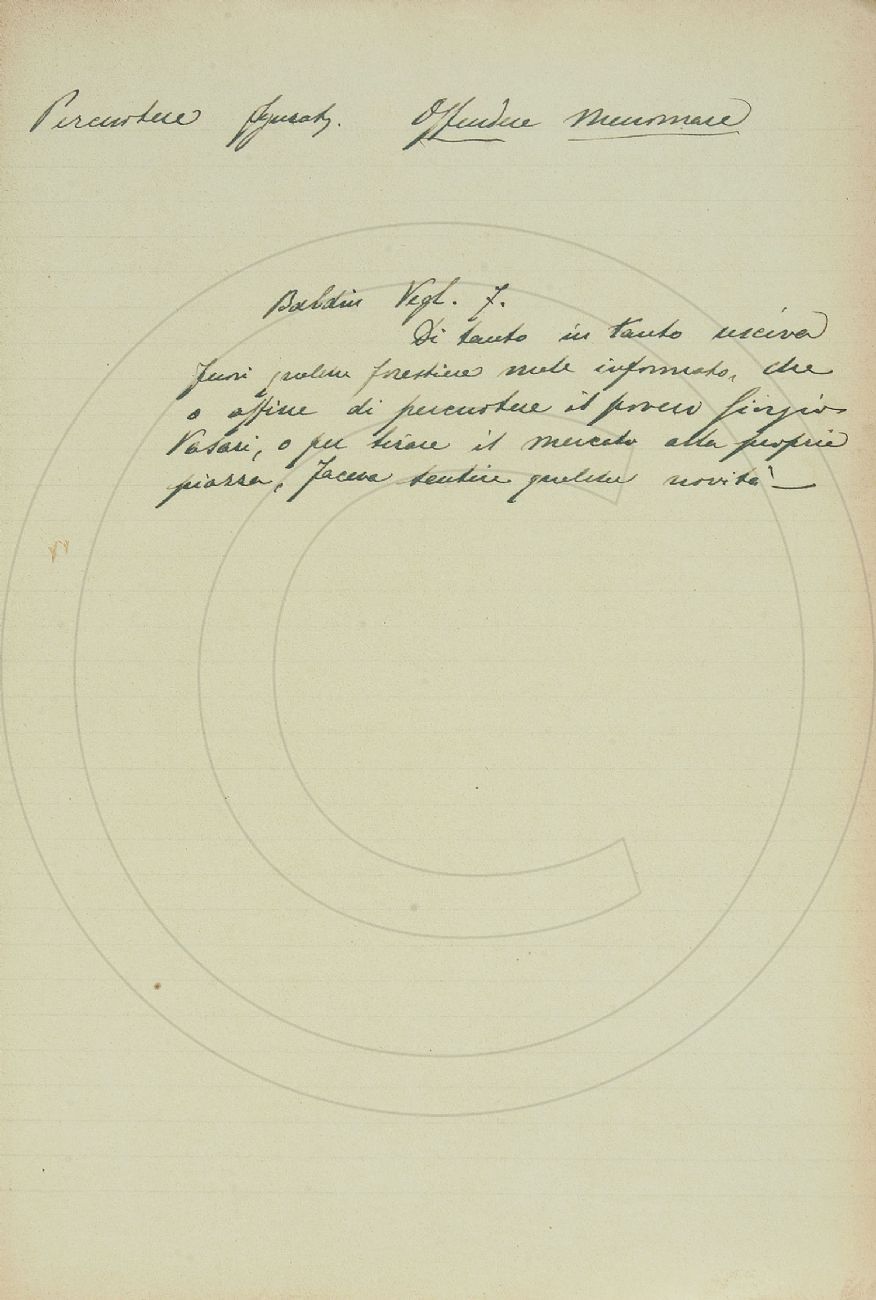 Percuotere figurat. Offendere Menomare
Baldin Vegl. 7.
Di tanto in tanto usciva
fuori qualche forestiere male informato, che
o affine di percuotere il povero Giorgio
Vasari, o per tirare il mercato alla propria
piazza, faceva sentire qualche novità —